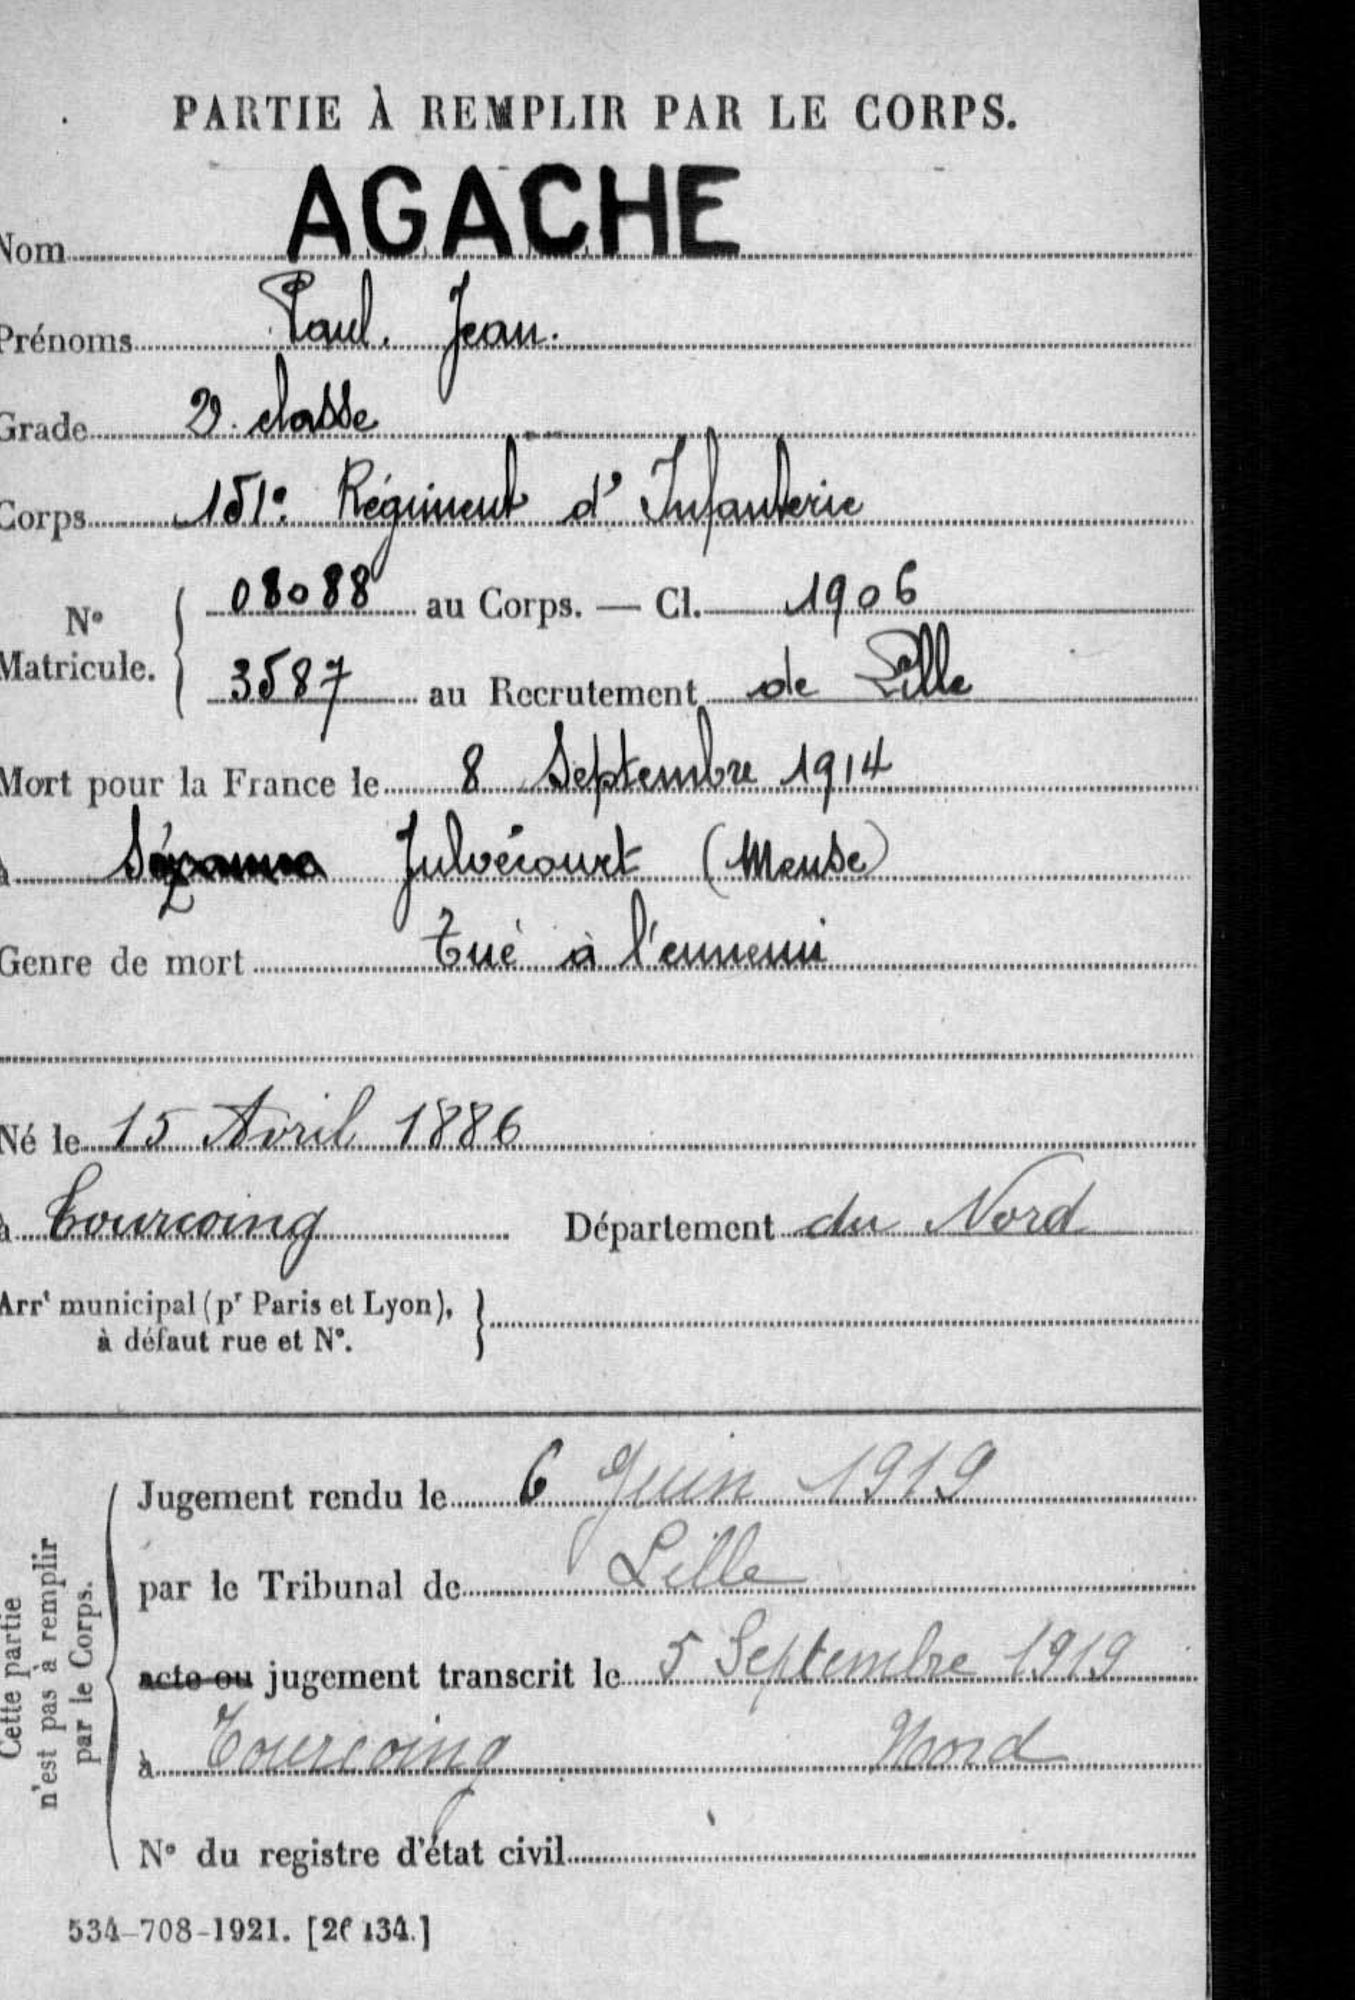 PARTIE À REMPLIR PAR LE CORPS.
Nom AGACHE
Prénoms Paul. Jean.
Grade 2e. classe
Corps 151e. Régiment d'Infanterie
N° Matricule. 08088 au Corps. — Cl. 1906
3587 au Recrutement de Lille
Mort pour la France le 8 Septembre 1914
à Sézanne Julvécourt (Meuse)
Genre de mort Tué à l'ennemi
Né le 15 Avril 1886
à Tourcoing Département du Nord
Arrt municipal (pr Paris et Lyon),
à défaut rue et N°.
Cette partie
n'est pas à remplir
par le Corps.
Jugement rendu le 6 Juin 1919
par le Tribunal de Lille
acte ou jugement transcrit le 5 Septembre 1919
à Tourcoing Nord
N° du registre d'état civil
534-708-1921. [26134.]